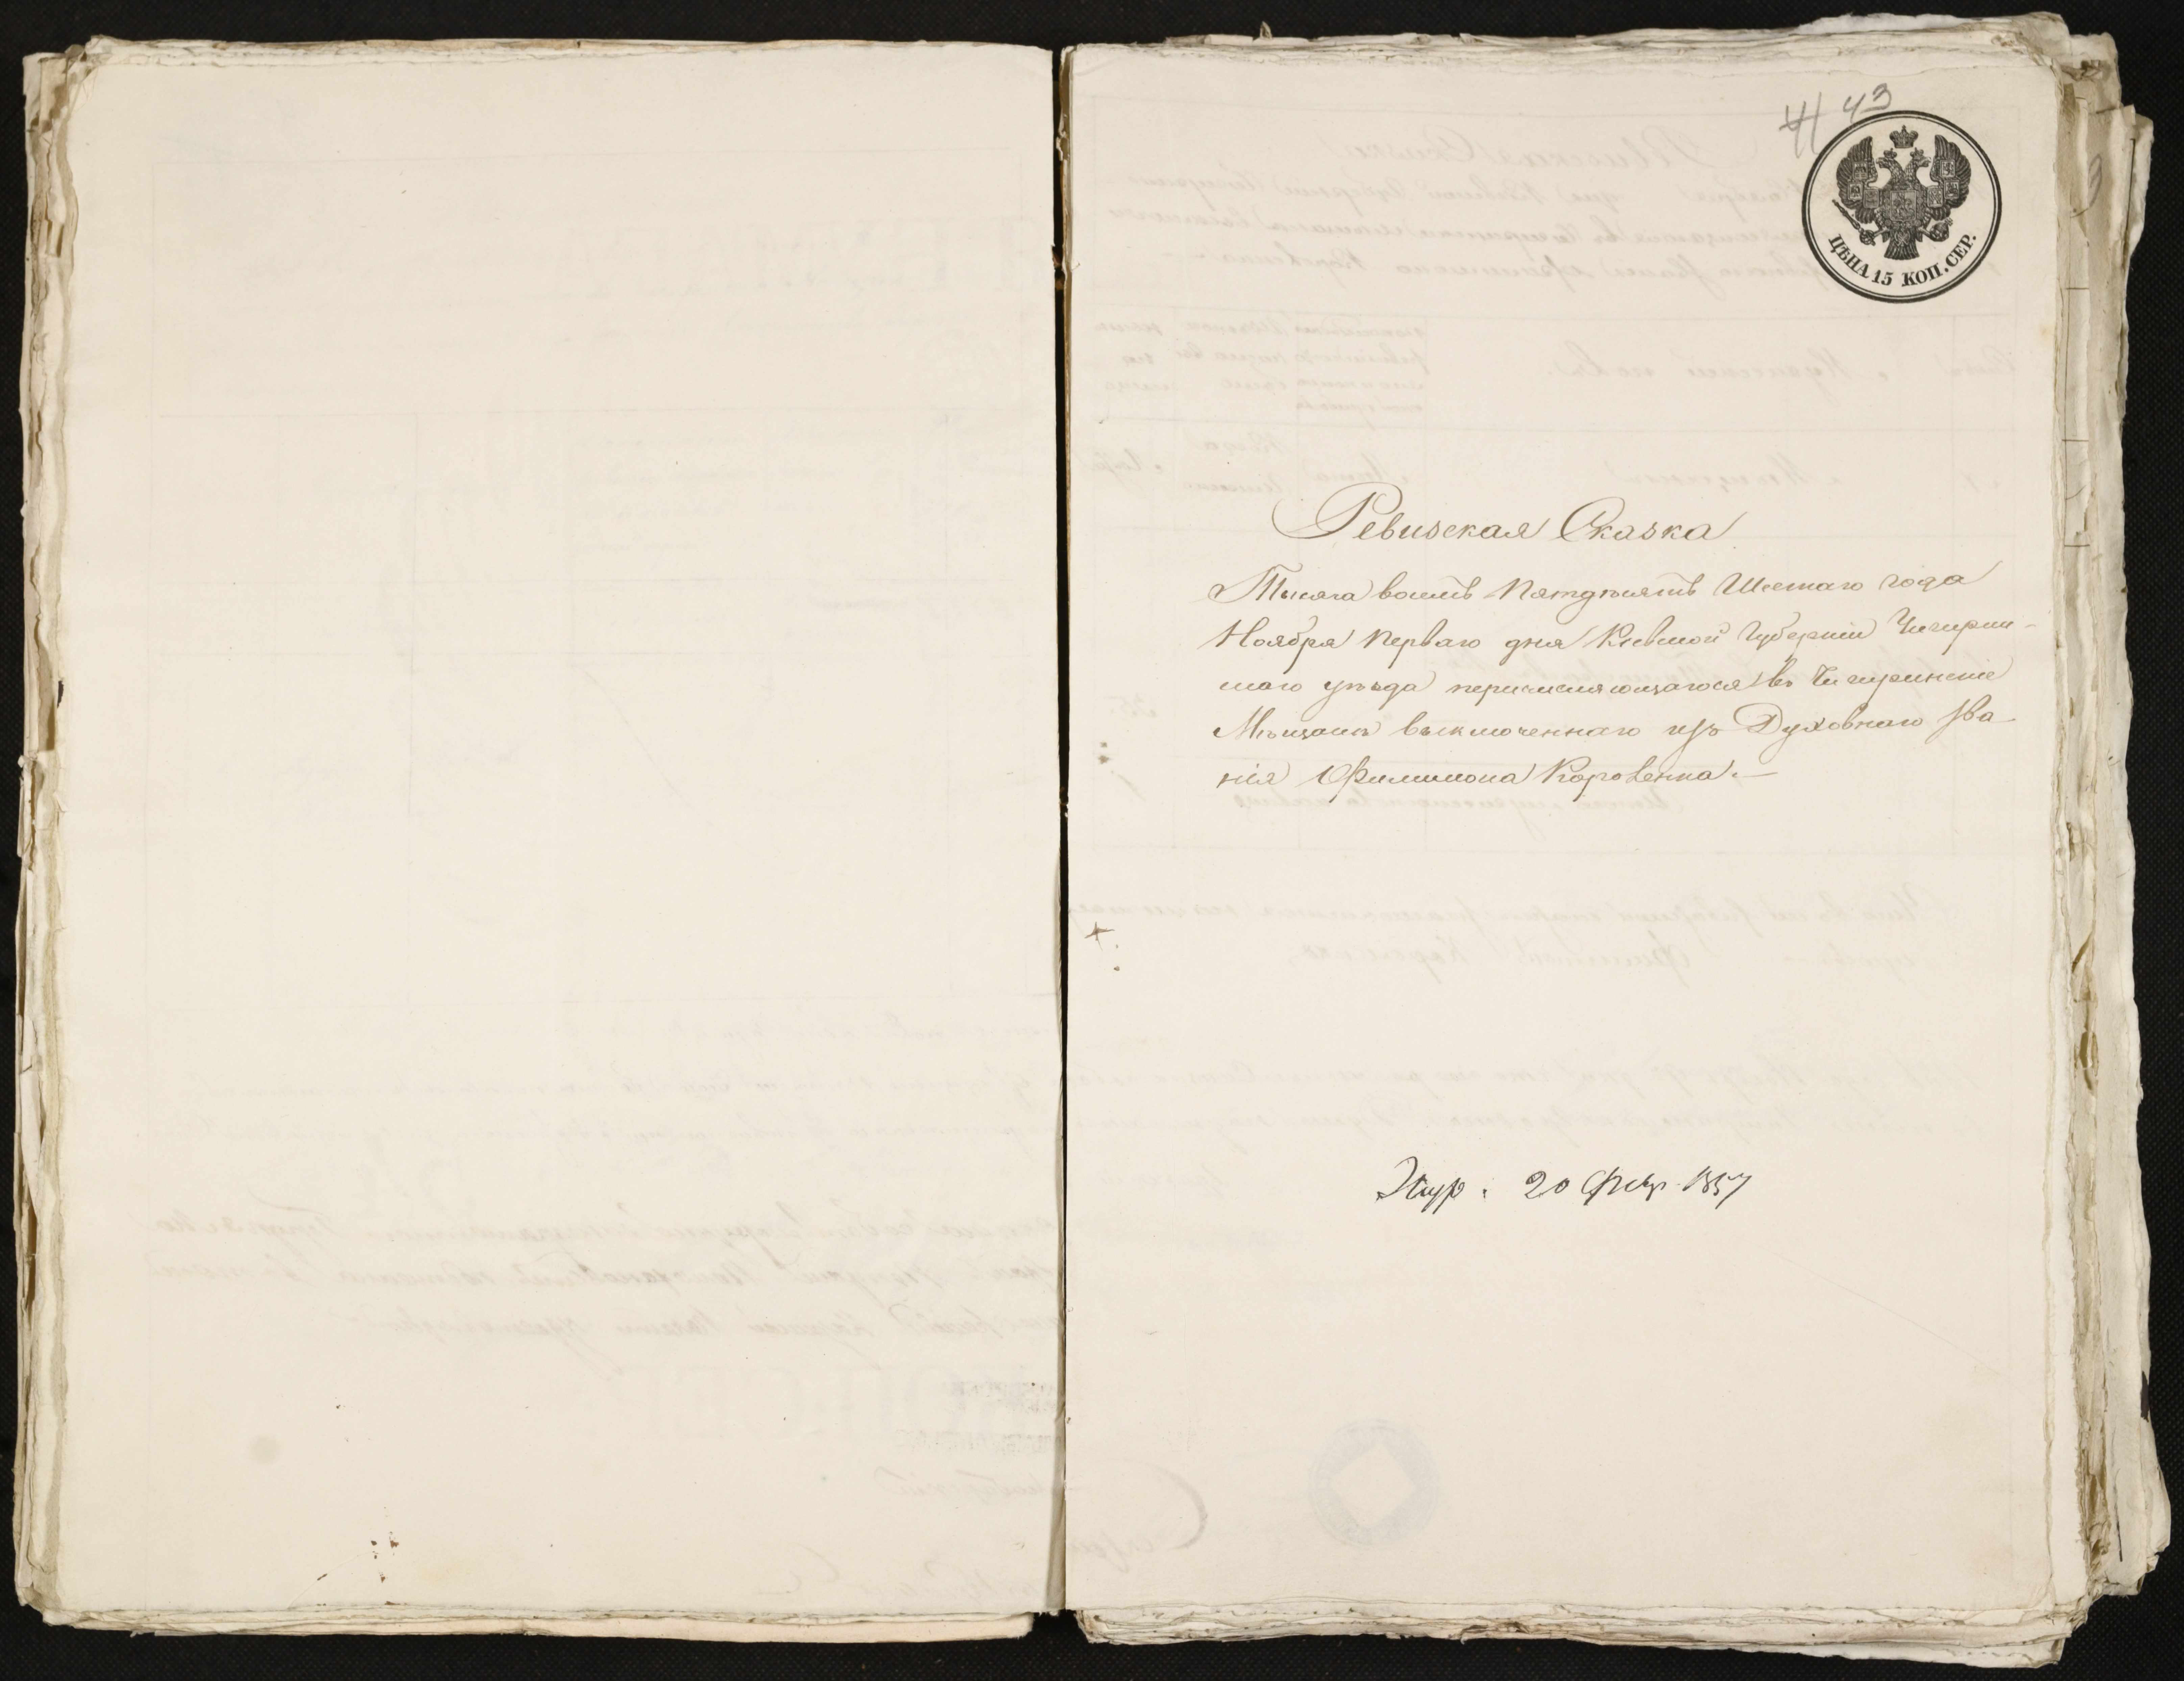 43
ЦѢНА 15 КОП. СЕР.
Ревизская Сказка
Тысяча восемь Пятдесять Шестаго года
Ноября перваго дня Кіевской Губерніи Чигирин-
скаго уѣзда перичисляющагося въ Чигиринскіе
Мѣщане выключеннаго изъ Духовнаго зва-
нія Филимона Коровенка.—
Жур. 20 Февр. 1857